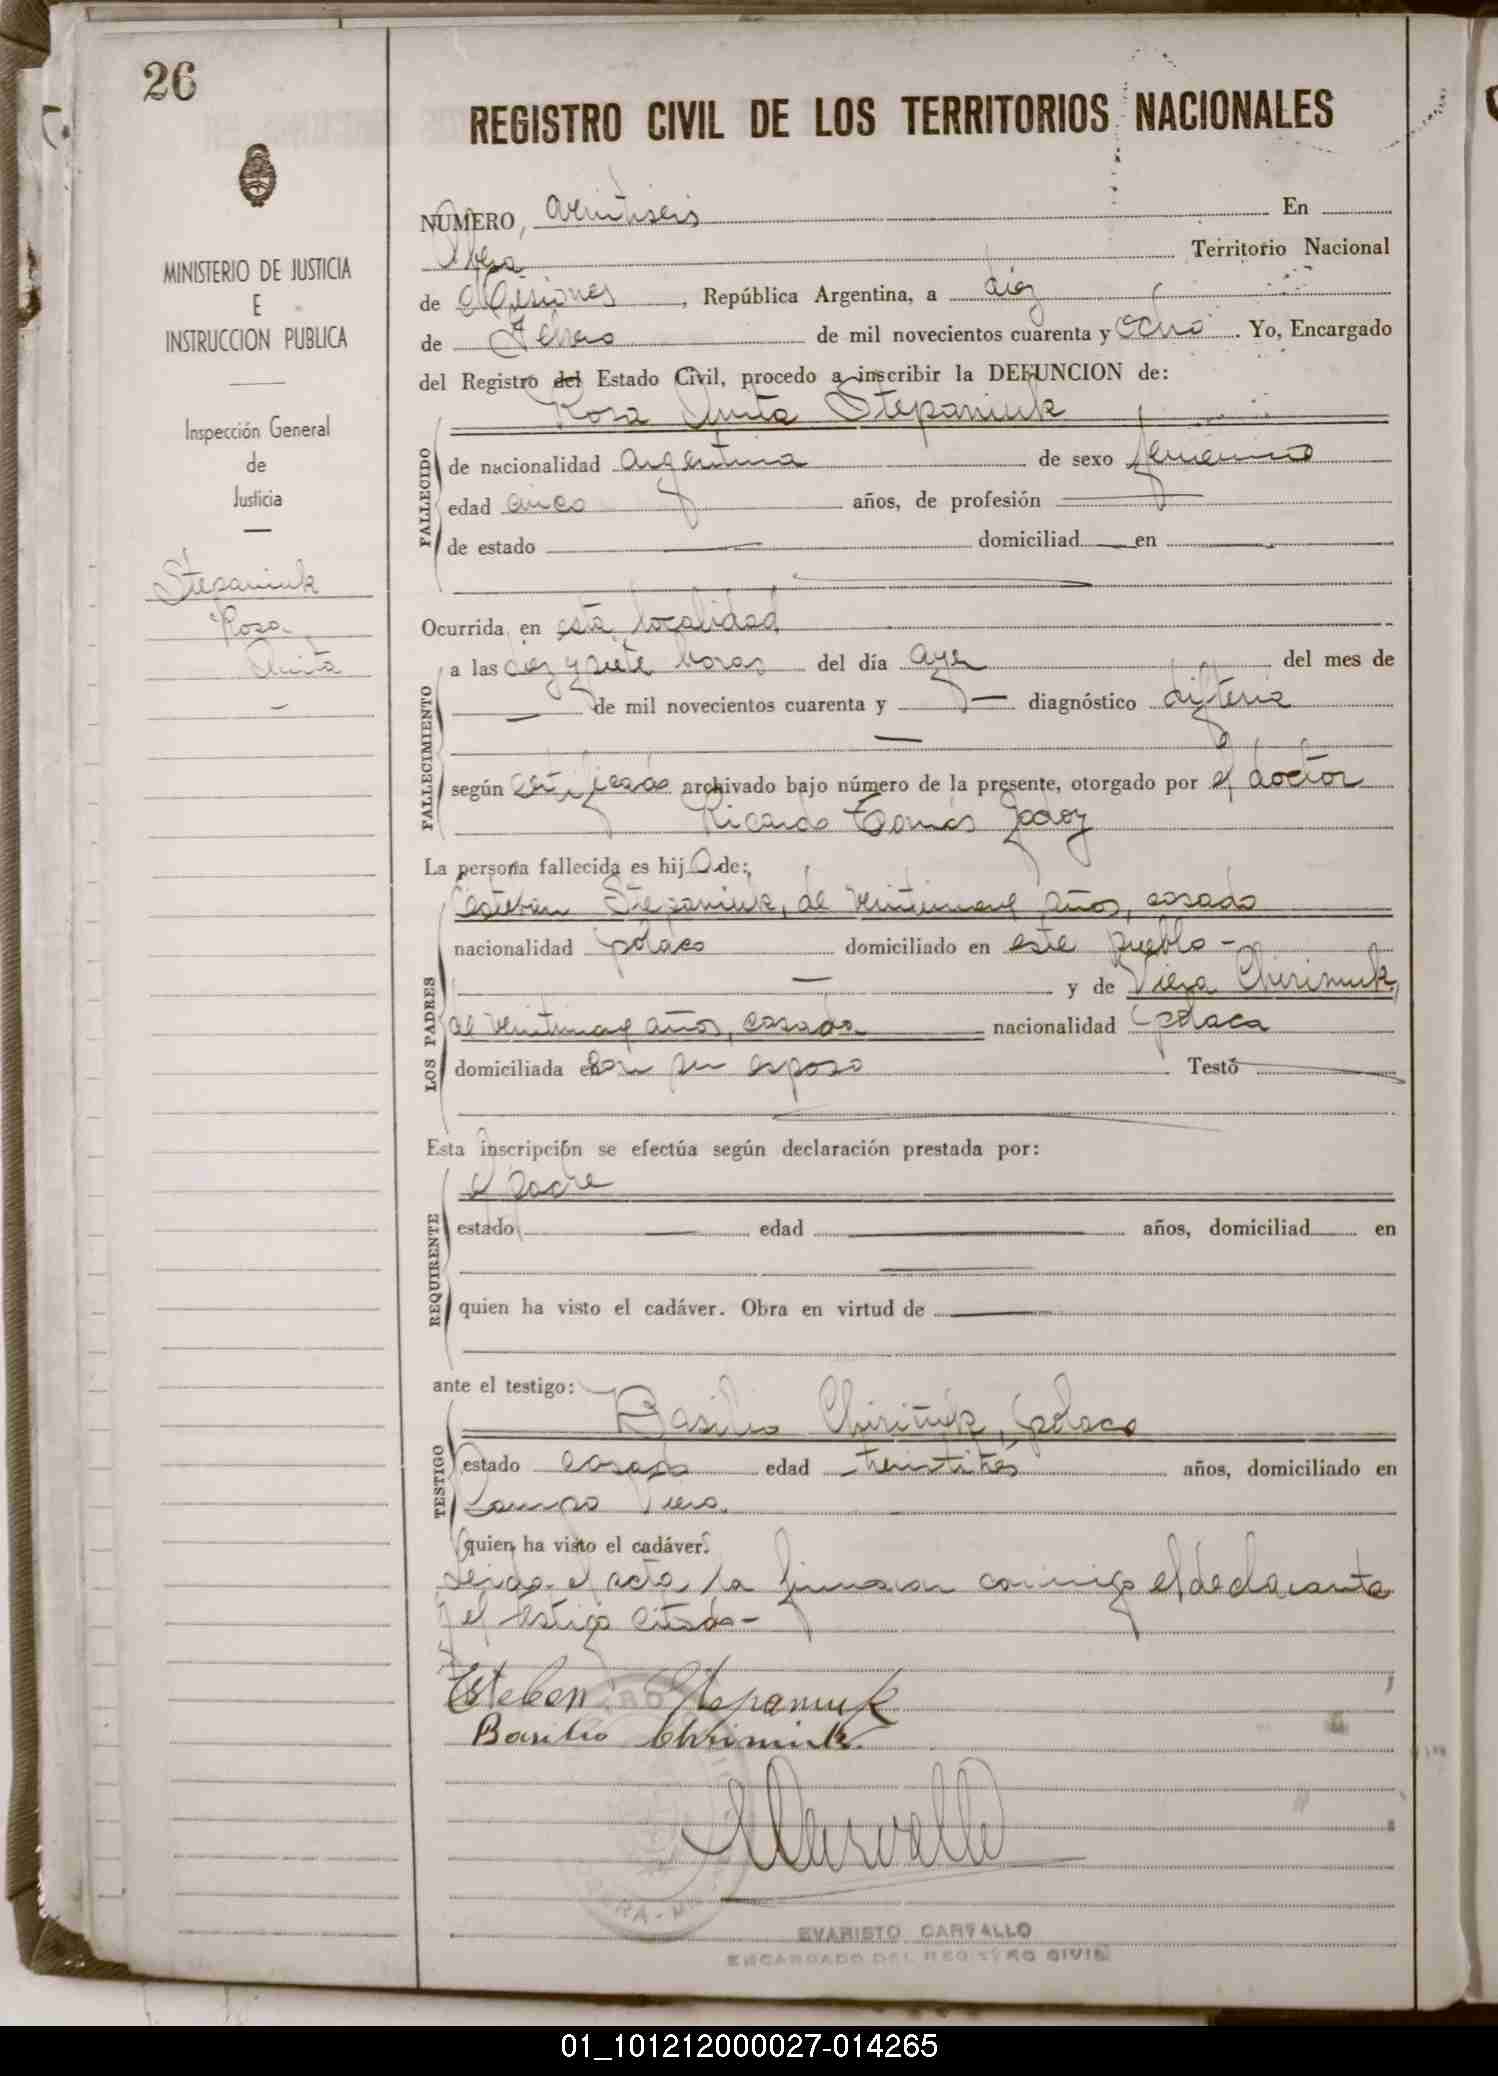 26
REGISTRO CIVIL DE LOS TERRITORIOS NACIONALES
MINISTERIO DE JUSTICIA
E
INSTRUCCION PUBLICA
Inspección General
de
Justicia
Stepaniuk
Rosa
Anita
NUMERO, veintiseis En
Obera Territorio Nacional
de Misiones, República Argentina, a diez
de Febrero de mil novecientos cuarenta y ocho. Yo, Encargado
del Registro del Estado Civil, procedo a inscribir la DEFUNCION de:
Rosa Anita Stepaniuk
FALLECIDO
de nacionalidad argentina de sexo femenino
edad cinco años, de profesión
de estado domiciliad en
Ocurrida en esta localidad
FALLECIMIENTO
a las diez y siete horas del día ayer del mes de
de mil novecientos cuarenta y diagnóstico difteria
según certificado archivado bajo número de la presente, otorgado por el doctor
Ricardo Tomás Godoy
La persona fallecida es hija de:
LOS PADRES
Esteban Stepaniuk, de veintinueve años, casado
nacionalidad polaco domiciliado en este pueblo -
y de Viera Chirimuk,
de veintinueve años, casada nacionalidad polaca
domiciliada con su esposo Testó
Esta inscripción se efectúa según declaración prestada por:
REQUIRENTE
el padre
estado edad años, domiciliad en
quien ha visto el cadáver. Obra en virtud de
ante el testigo:
TESTIGO
Basilio Chiriñuk, polaco
estado casado edad treintitrés años, domiciliado en
Campo Viera.
quien ha visto el cadáver.
Leida el acta, la firmaron conmigo el declarante
y el testigo citado -
Esteban Stepaniuk
Basilio Chrimiuk.
EVARISTO CARVALLO
ENCARGADO DEL REGISTRO CIVIL
01_101212000027-014265